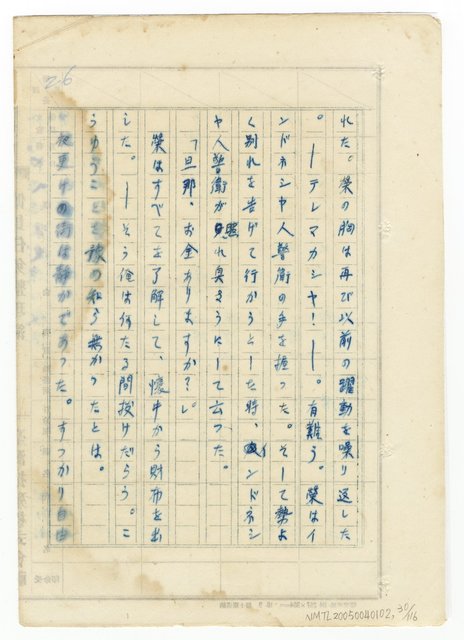 26
れた。榮の胸は再び以前の躍動を噪り返した
。――テレマカシヤ!――。有難う。榮はイ
ンドネシヤ人警衛の手を握った。そして勢よ
く別れを告げて行かうとした時、インドネシ
ヤ人警衛が照れ臭さうにして云った。
「旦那、お金ありますか?」。
榮はすべてを了解して、懐中から財布を出
した。――そう俺は何たる間抜けだらう。こ
うゆうことを後の祭り無かったとは。
夜更けの街は静かであった。すっかり自由
NMTL20050040102, 30/116